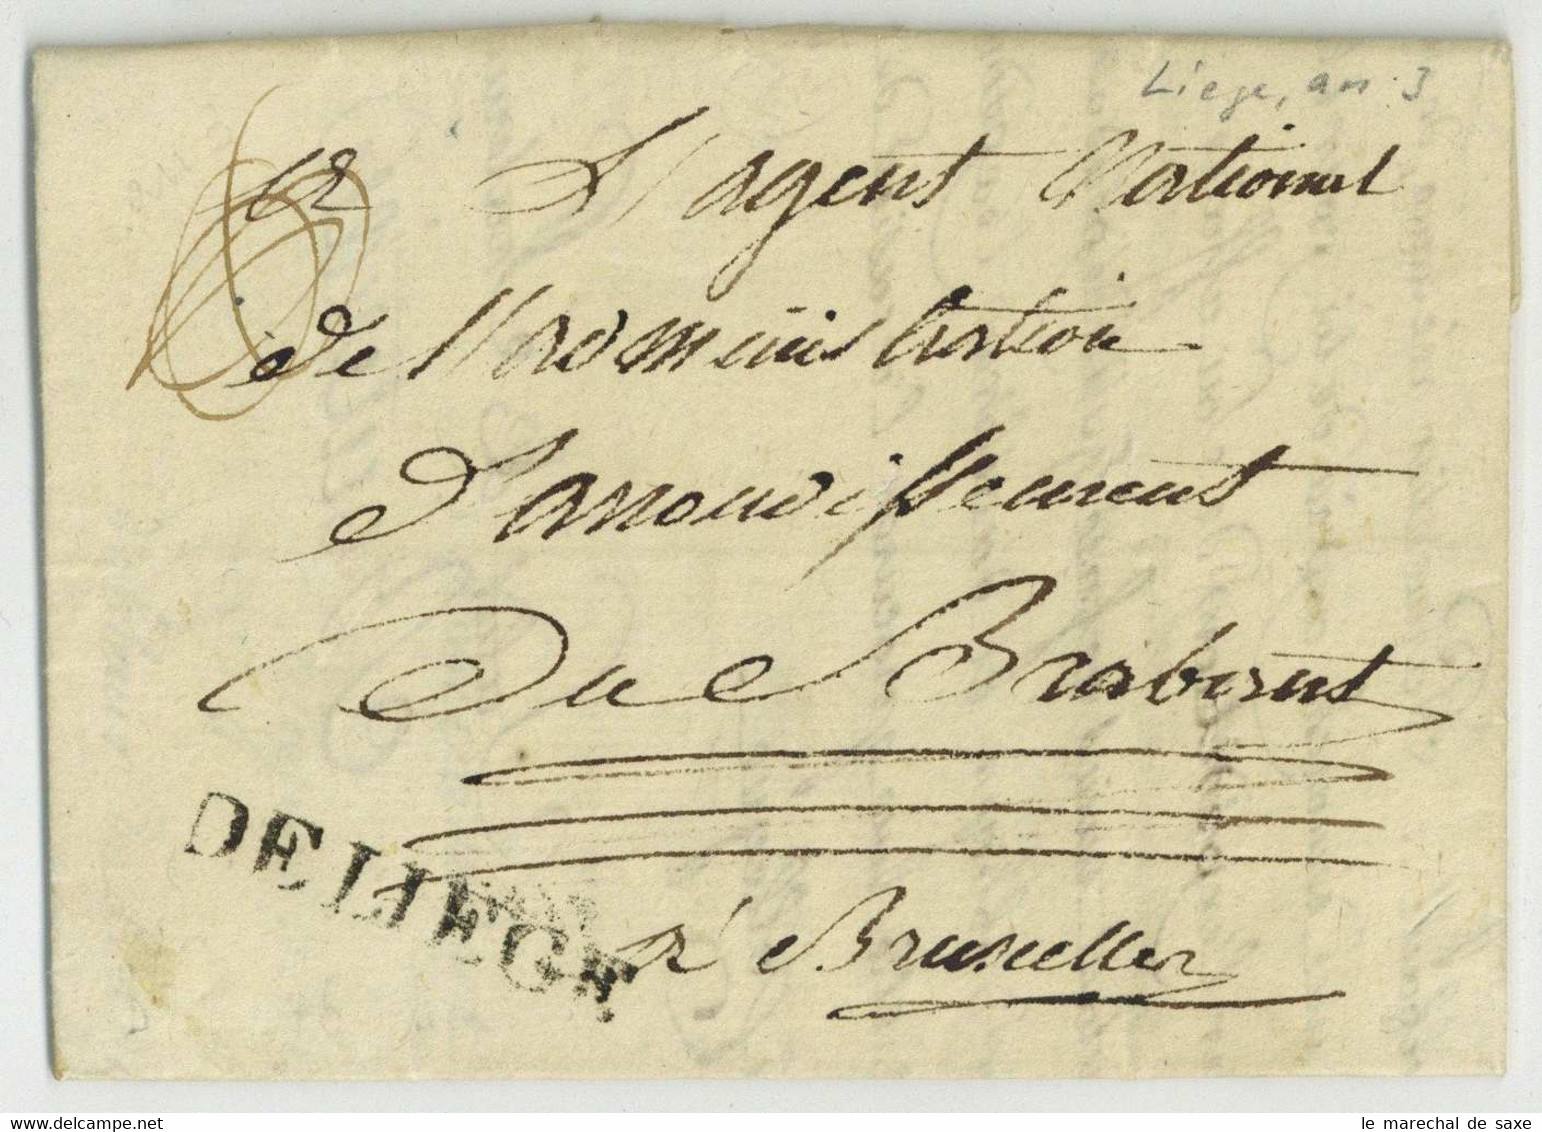 Liege, an 3
a L'agent National
de L'administration
D'arrondissement
Du Brabant
DE LIEGE
a Bruxelles
le marechal de saxe